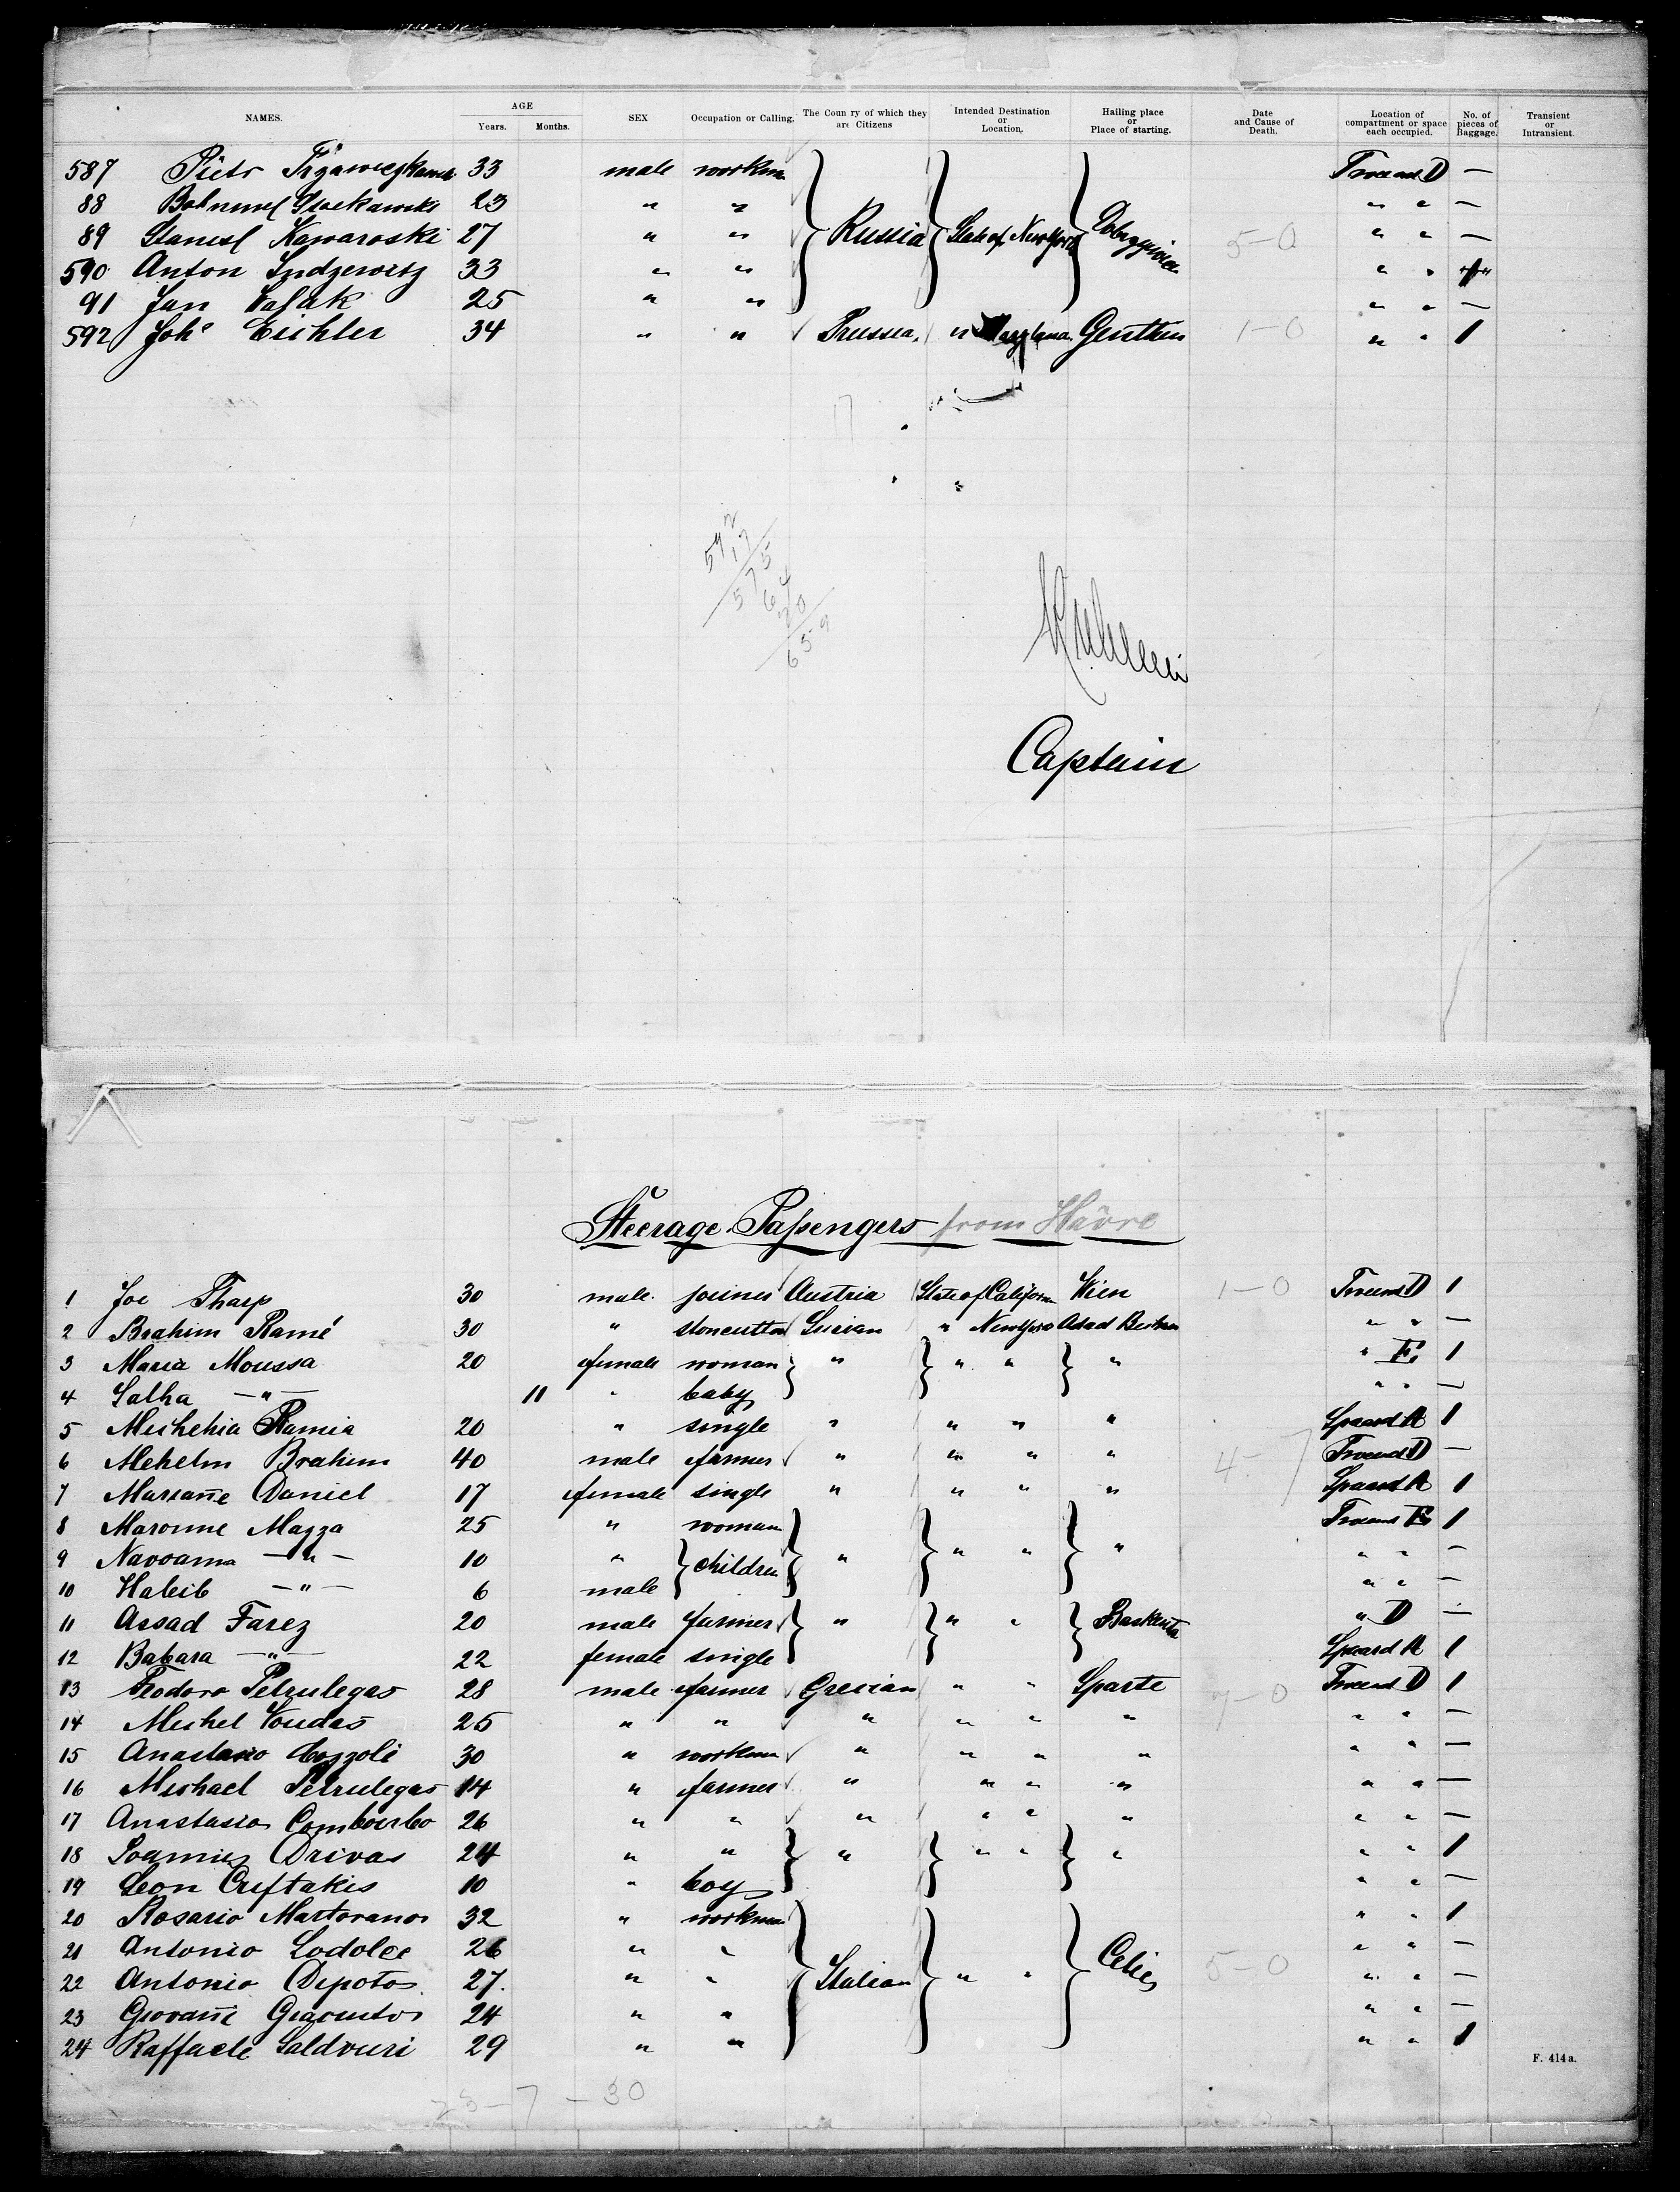 NAMES. AGE Years. Months. SEX Occupation or Calling. The Coun ry of which they are Citizens Intended Destination or Location. Hailing place or Place of starting. Date and Cause of Death. Location of compartment or space each occupied. No. of pieces of Baggage. Transient or Intransient.
587 33 male workm Russia State of New York D —
88 23 " " " " —
89 Stanisl Kawaroski 27 " " 5-0 " " —
590 Anton 33 " " " "
91 Jan 25 " " " " —
592 Joh^s Eichler 34 " " Prussia. " Genthin 1-0 " " 1
592
17
575
64
20
659
Captain
Steerage Passengers from Hâvre
1 Joe Tharp 30 male. joiner Austria State of Californ Wien 1-0 D 1
2 Brahim Ramé 30 " stonecutter Surian " New York " " —
3 Maria Moussa 20 female woman " " " " " E. 1
4 Salha —"— 11 " baby " " —
5 Michehia Ramia 20 " single " " " " A 1
6 Mehelm Brahim 40 male farmer " " " " 4-7 D —
7 Mariañe Daniel 17 female single " " " " A 1
8 Maronne Mazza 25 " woman E 1
9 Navoama —"— 10 " children " " " " " " —
10 Habib —"— 6 male " " —
11 Assad Farez 20 male farmer " " " Baskinta " D —
12 Babara —"— 22 female single A 1
13 Teodoro Petrulegas 28 male farmer Grecian " " Sparte 7-0 D 1
14 Michel Voudas 25 " " " " " " " " —
15 Anastasio Cozzoli 30 " workm " " " " " " —
16 Michael Petrulegas 14 " farmer " " " " " " —
17 Anastasio Combourlo 26 " " " " " " " " —
18 Joannis Drivas 24 " " " " " " " " 1
19 Leon Criftakis 10 " boy " " —
20 Rosario Martorano 32 " workman " " 1
21 Antonio Lodolce 26 " " " " —
22 Antonio Depoto 27. " " Italian " " 5-0 " " —
23 Giovañi Giacinto 24 " " " " —
24 Raffaele Saldvuri 29 " " " " 1
F. 414 a.
23-7-30